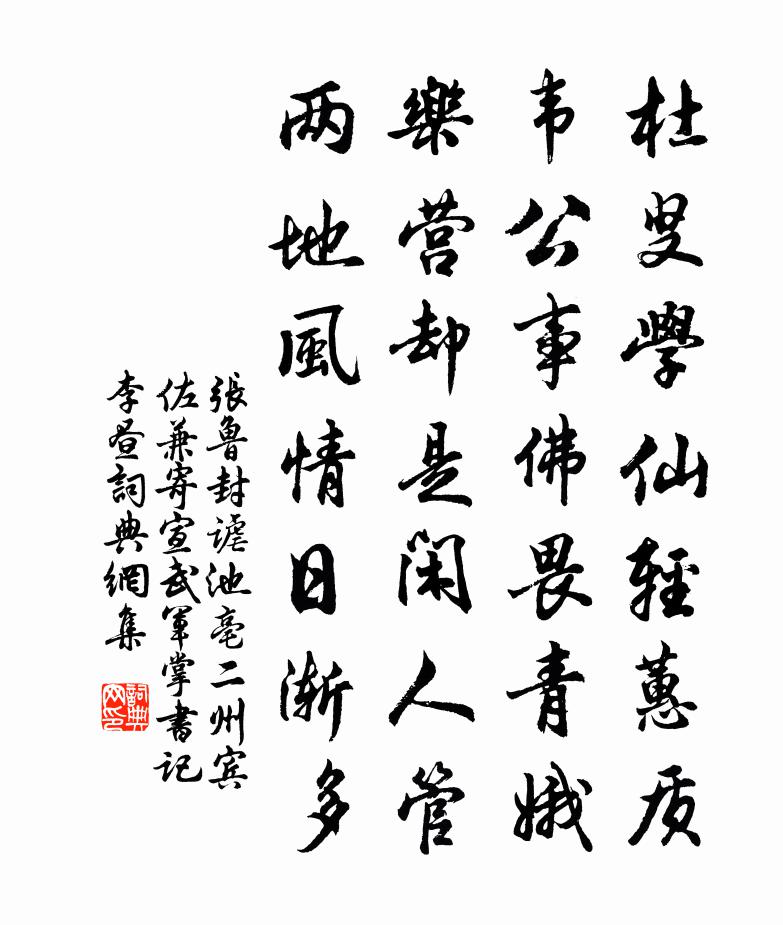 杜叟學仙輕蕙质
韦公事佛畏青娥
樂营却是閑人管
两地風情日渐多
張魯封謔池亳二州宾
佐兼寄宣武軍掌書记
李昼詞典網集
詞典网印